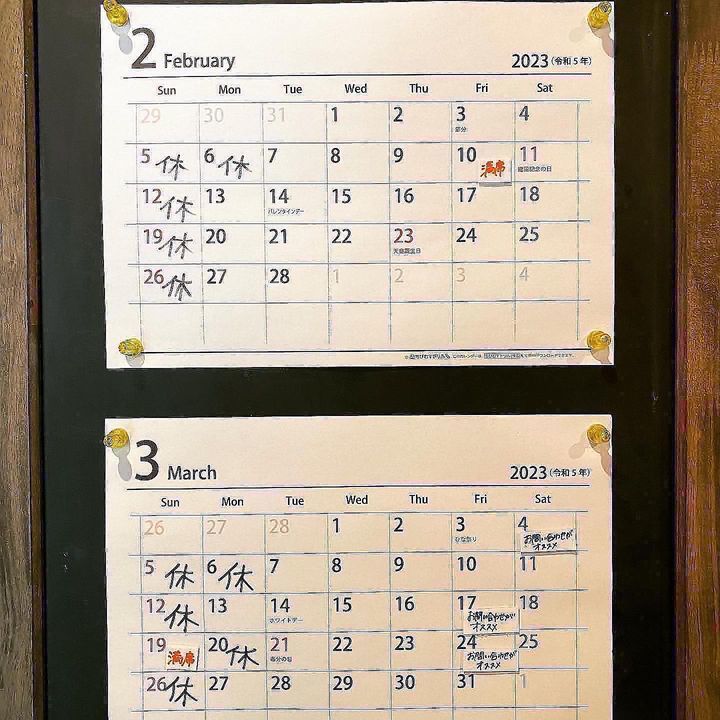 2 February 2023 (令和5年)
Sun Mon Tue Wed Thu Fri Sat
29 30 31 1 2 3 4
節分
5 休 6 休 7 8 9 10 満席 11
建国記念の日
12 休 13 14 15 16 17 18
バレンタインデー
19 休 20 21 22 23 24 25
天皇誕生日
26 休 27 28 1 2 3 4
3 March 2023 (令和5年)
Sun Mon Tue Wed Thu Fri Sat
26 27 28 1 2 3 4
ひな祭り お問い合わせが
オススメ
5 休 6 休 7 8 9 10 11
12 休 13 14 15 16 17 18
ホワイトデー お問い合わせが
オススメ
19 満席 20 休 21 22 23 24 25
春分の日 お問い合わせが
オススメ
26 休 27 28 29 30 31 1